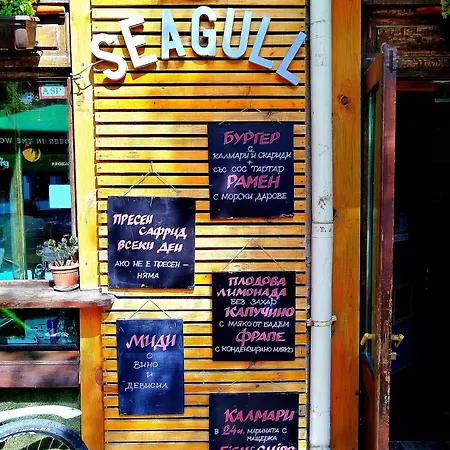 SEAGULL
ASP
БУРГЕР
С
КАЛМАРИ И СКАРИДИ
+
СЪС СОС ТАРТАР
РАМЕН
С МОРСКИ ДАРОВЕ
ПРЕСЕН
САФРИД
ВСЕКИ ДЕН
АКО НЕ Е ПРЕСЕН –
НЯМА
ПЛОДОВА
ЛИМОНАДА
БЕЗ ЗАХАР
КАПУЧИНО
С МЛЯКО ОТ БАДЕМ
ФРАПЕ
С КОНДЕНЗИРАНО МЛЯКО
МИДИ
С
ВИНО
И
ДЕВИСИЛ
КАЛМАРИ
В 24ч. МАРИНАТА С
МАЩЕРКА